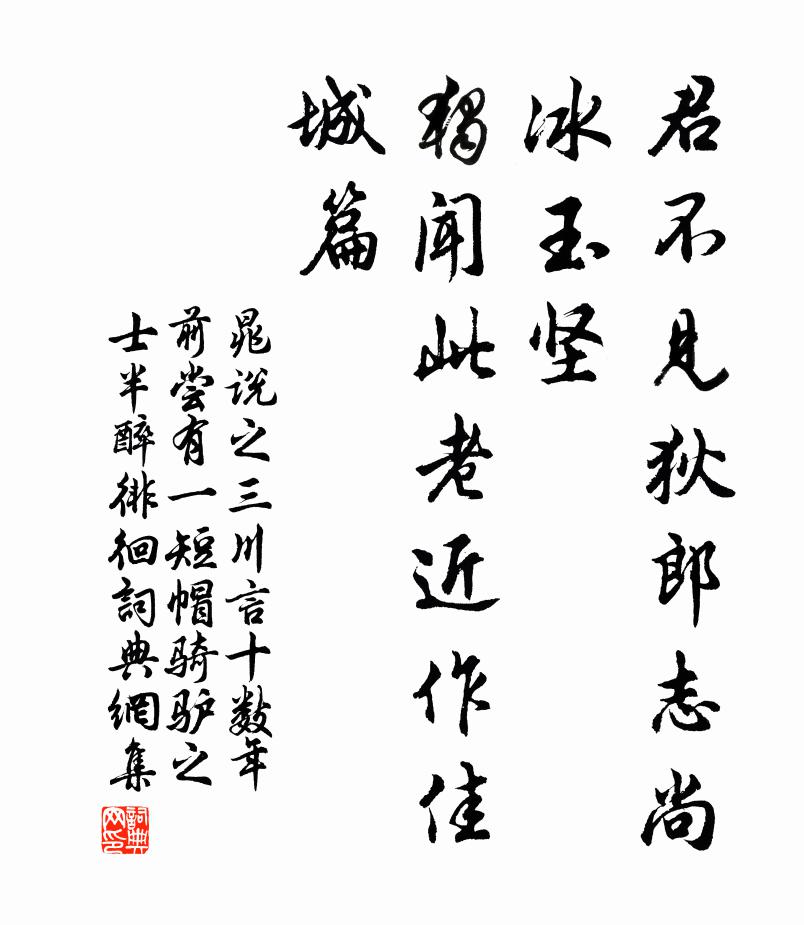 君不见狄郎志尚
冰玉坚
独闻此老近作佳
城篇
晁说之三川言十数年
前尝有一短帽骑驴之
士半醉徘徊詞典網集
詞典網印